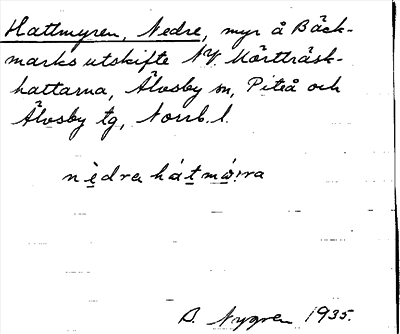 Hattmyren, Nedre, myr å Bäck-
marks utskifte NV. Mörtträsk-
hattarna, Älvsby sn, Piteå och
Älvsby tg, Norrb. l.
nèdra hátmø̀ira
B. Nygren 1935.